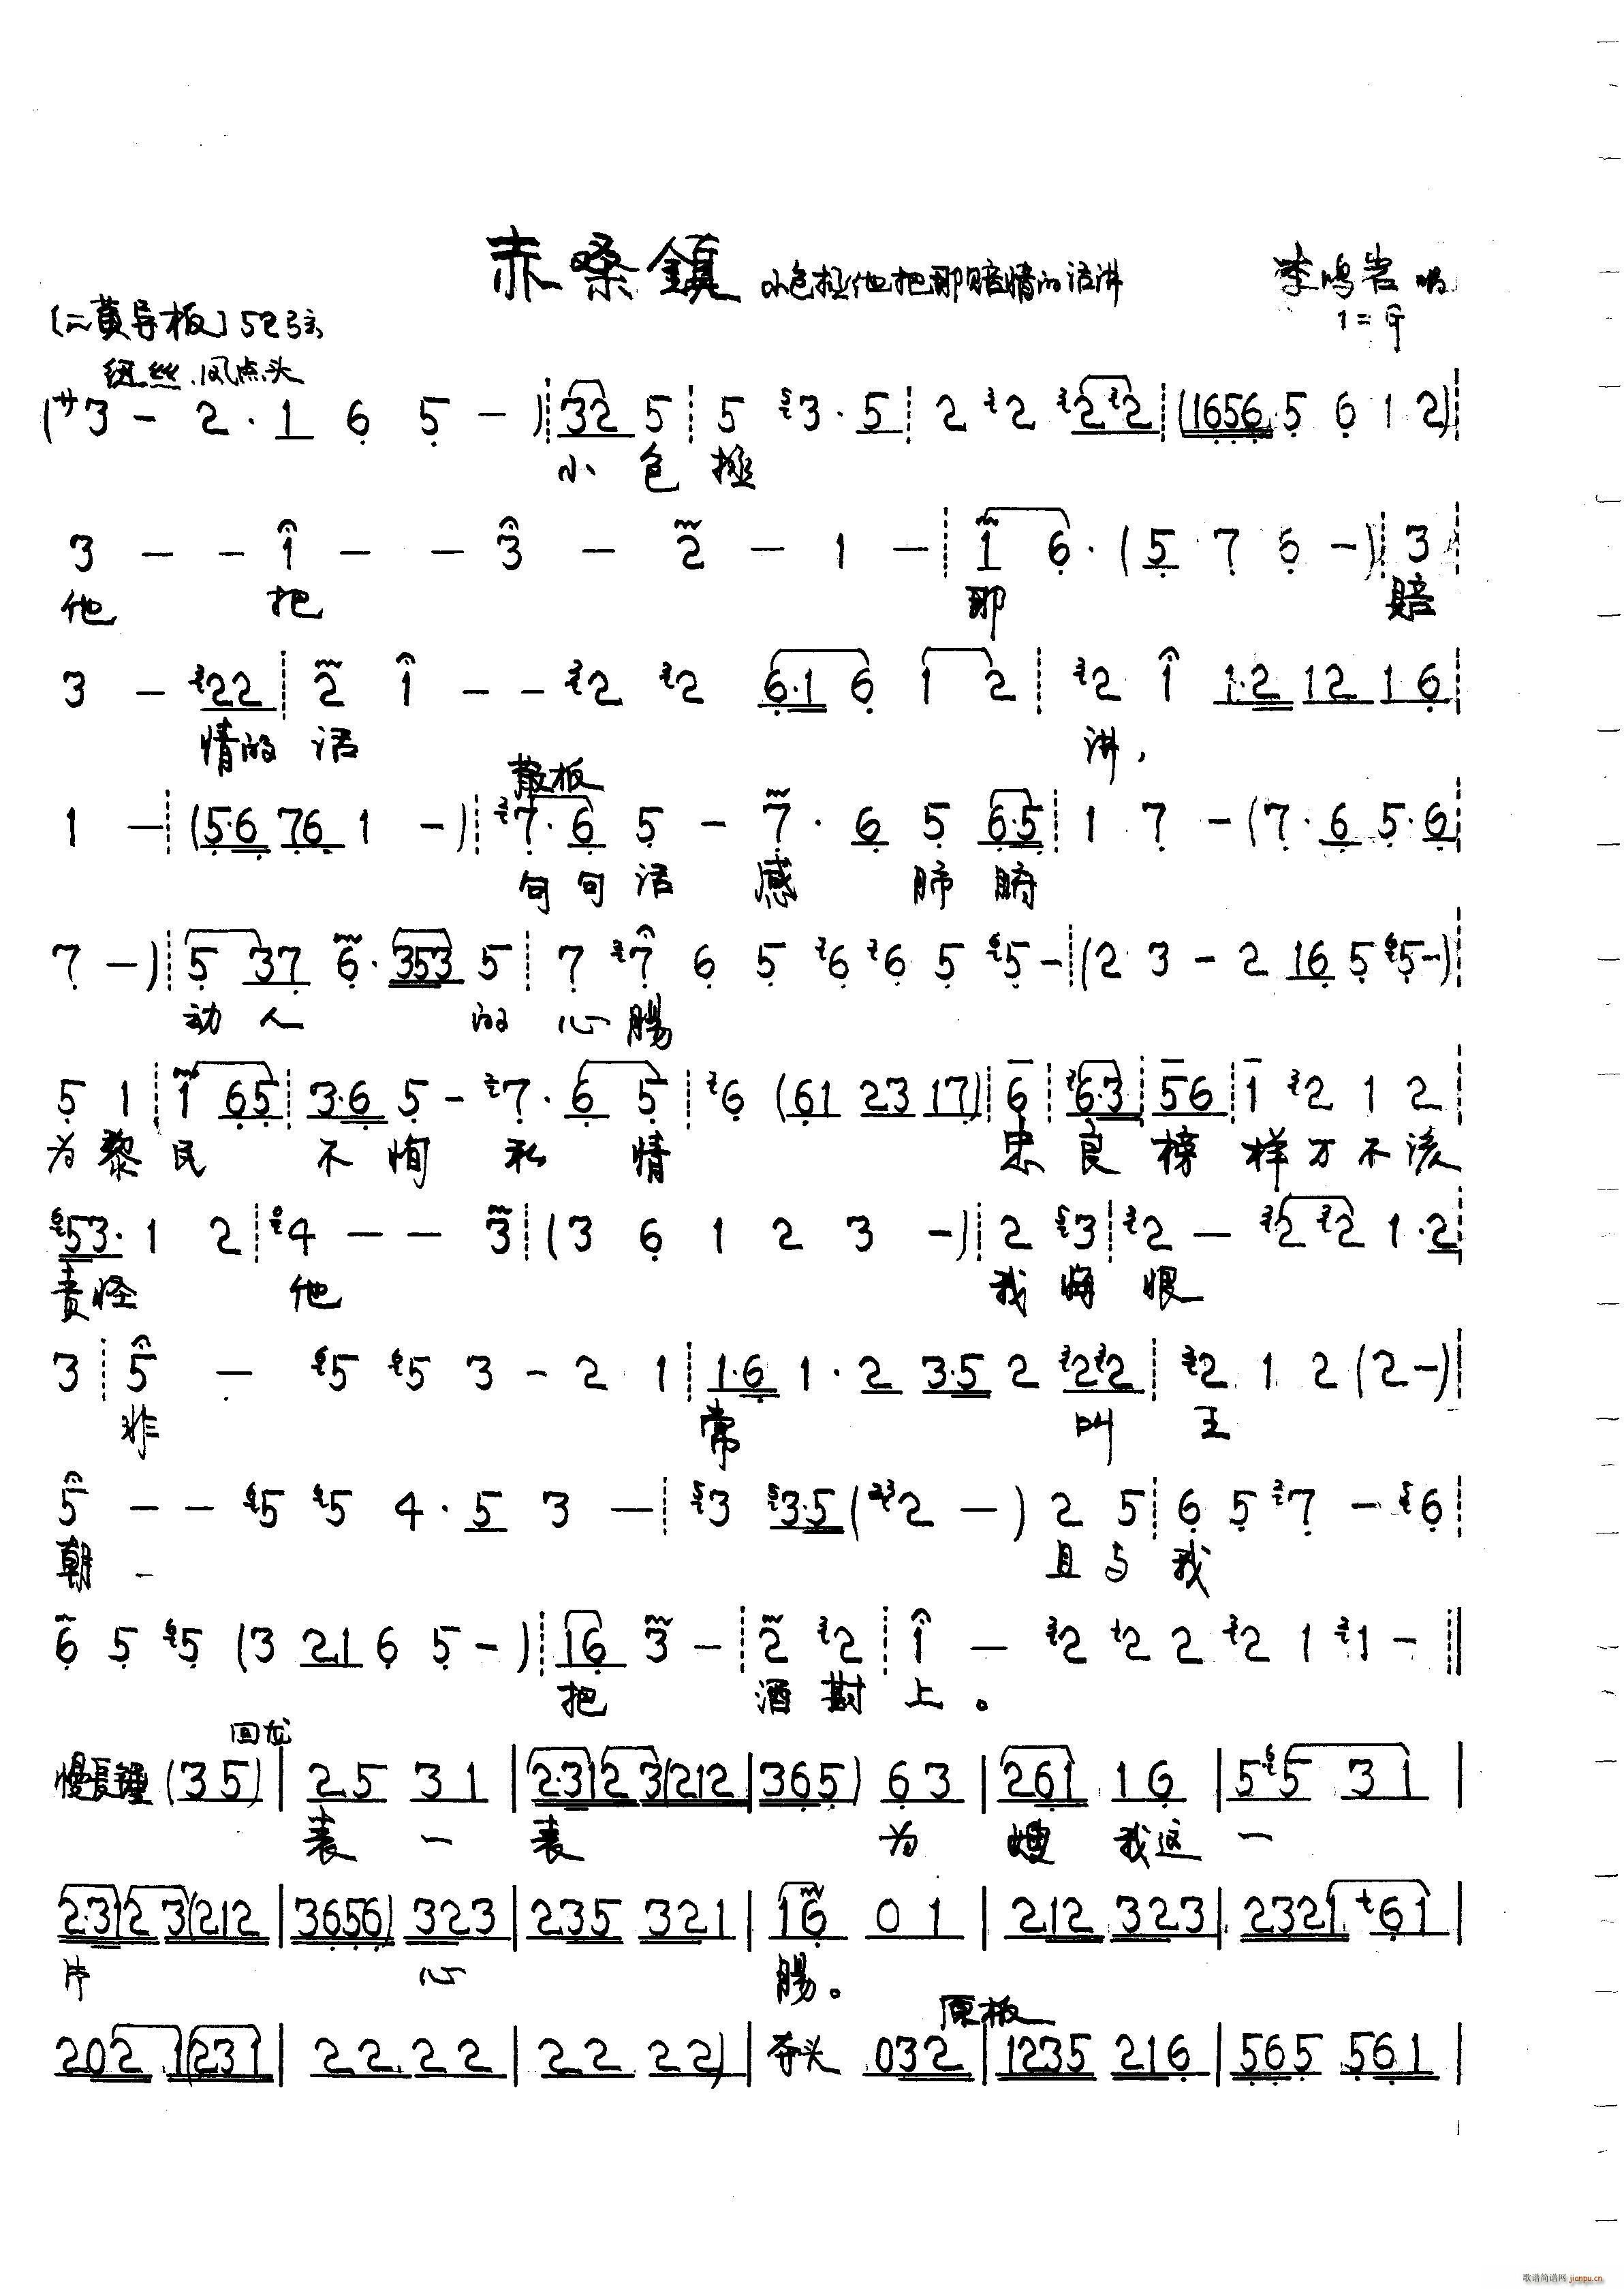 赤桑鎮 小包拯他把那赔情的话讲 李鸣岩 唱
[二黄导板] 52弦 1=G
纽丝.风点头
(サ3 - 2 · 1 6 5 -) 32 5 5 3 · 5 2 2 22 (1656 5 6 1 2)
小 包 拯
3 - - 1 - - 3 - 2 - 1 - 1 6 · (5 7 6 -) 3
他 把 那 赔
3 - 22 2 1 - - 2 2 6·1 6 1 2 2 1 1·2 12 16
情的 话 讲,
散板
1 - (5·6 76 1 -) 7·6 5 - 7 · 6 5 6·5 1 7 - (7 · 6 5 · 6
句 句 话 感 肺 腑
7 -) 5 37 6 · 353 5 7 7 6 5 6 6 5 5 - (2 3 - 2 16 5 5 -)
动 人 的 心 腸
5 1 1 65 3·6 5 - 7 · 6 5 6 (61 23 17) 6 6·3 56 1 2 1 2
为 黎 民 不 恂 私 情 忠 良 榜 样 万 不 该
53 · 1 2 4 - - 3 (3 6 1 2 3 -) 2 3 2 - 2 2 1 · 2
责怪 他 我 悔 恨
3 5 - 5 5 3 - 2 1 1·6 1 · 2 3·5 2 22 2 1 2 (2 -)
非 常 叫 王
5 - - 5 5 4 · 5 3 - 3 3·5 (2 -) 2 5 6 5 7 - 6
朝 - 且 与 我
6 5 5 (3 21 6 5 -) 16 3 - 2 2 1 - 2 2 2 2 1 1 -
把 酒 斟 上 。
回龙
慢長錘 (35) | 25 31 | 2·312 3(212 | 365) 63 | 261 16 | 55 31 |
表 一 表 为 嫂 我这 一
2·312 3(212 | 3656) 323 | 235 321 | 16 01 | 212 323 | 2321 61 |
片 心 腸。
原板
202 1(231 | 22 22 | 22 22) | 夺头 032 | 1235 216 | 565 561 |
歌谱简谱网 jianpu.cn